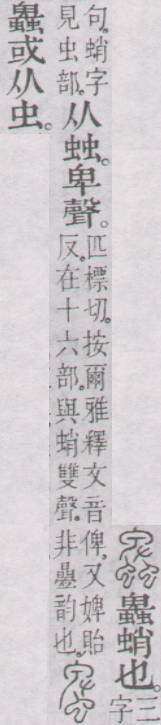 蛸也。
三
字
句。蛸字
見虫部。
从䖵。卑聲。
匹標切。按爾雅釋文音俾，又婢貽
反。在十六部。與蛸雙聲。非曡韵也。
或从虫。